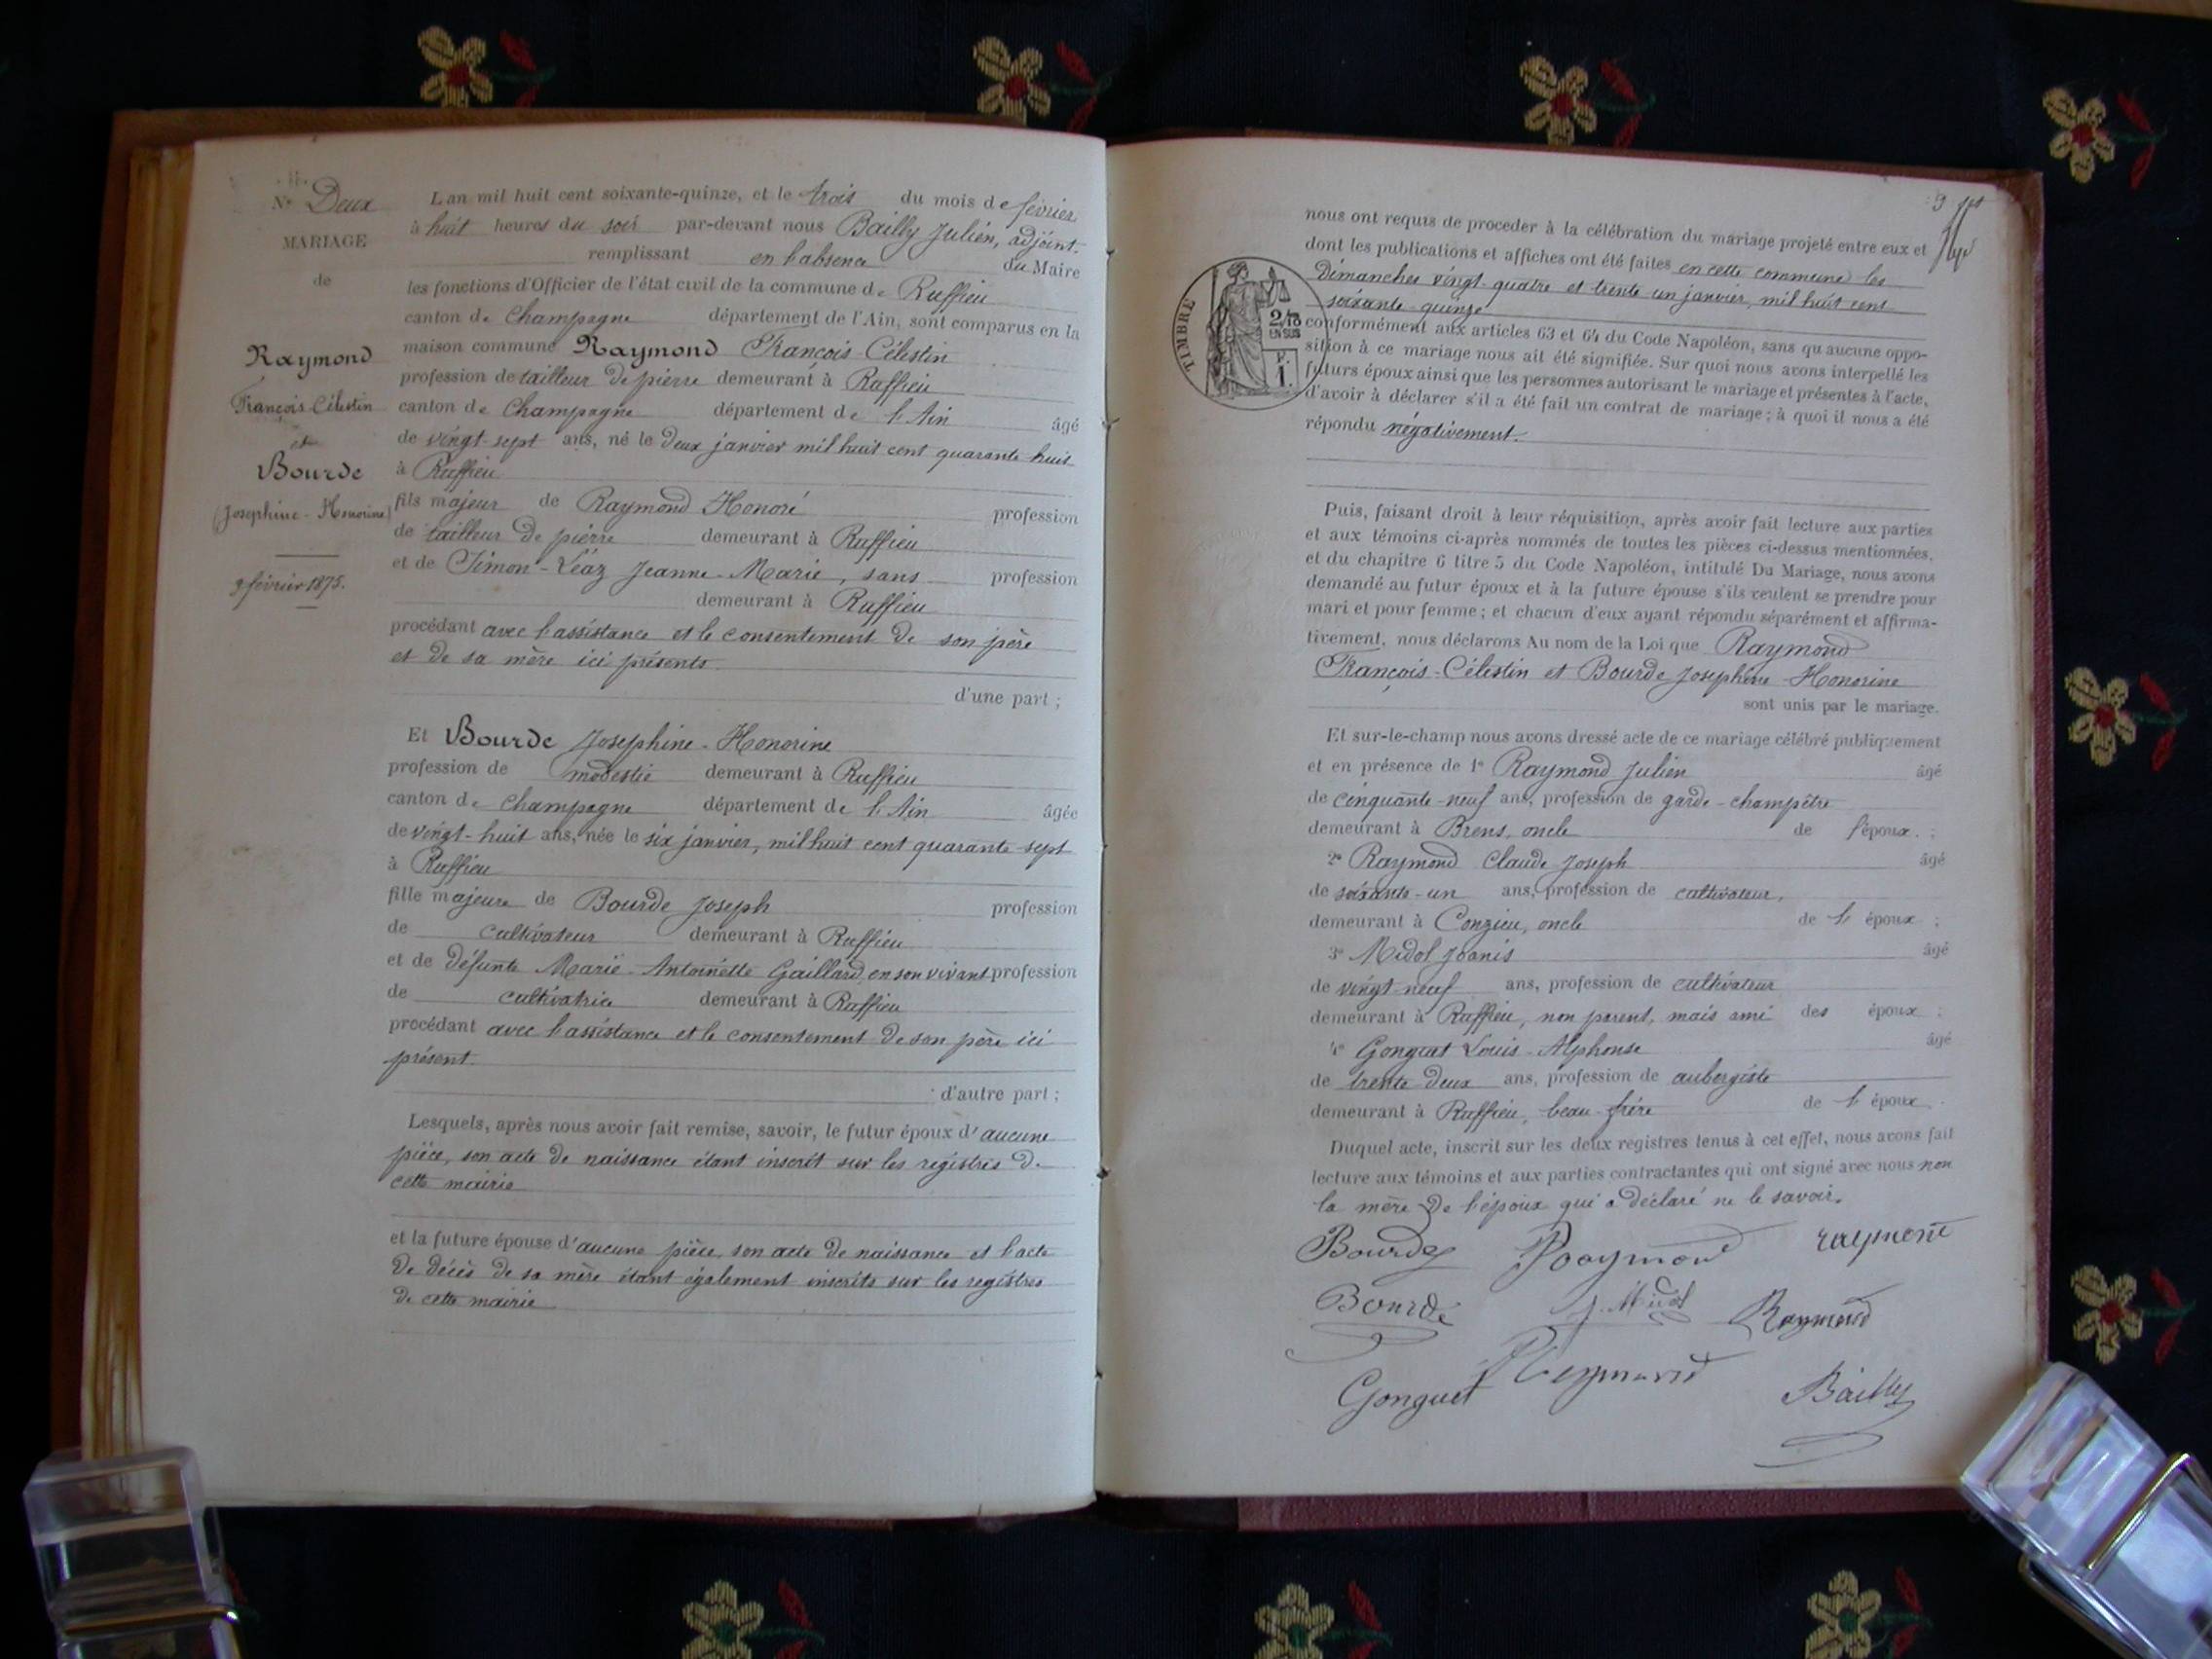 N° Deux
MARIAGE
de
Raymond
François-Célestin
et
Bourde
Josephine-Honorine
3 février 1875.
L'an mil huit cent soixante-quinze, et le trois du mois de février
à huit heures du soir par-devant nous Bailly Julien, adjoint
remplissant en l'absence du Maire
les fonctions d'Officier de l'état civil de la commune de Ruffieu
canton de Champagne département de l'Ain, sont comparus en la
maison commune Raymond François-Célestin
profession de tailleur de pierre demeurant à Ruffieu
canton de Champagne département de l'Ain âgé
de vingt-sept ans, né le deux janvier mil huit cent quarante-huit
à Ruffieu
fils majeur de Raymond Honoré profession
de tailleur de pierre demeurant à Ruffieu
et de Timon-Léaz Jeanne-Marie, sans profession
demeurant à Ruffieu
procédant avec l'assistance et le consentement de son père
et de sa mère ici présents
d'une part ;
Et Bourde Josephine-Honorine
profession de modestie demeurant à Ruffieu
canton de Champagne département de l'Ain âgée
de vingt-huit ans, née le six janvier, mil huit cent quarante sept
à Ruffieu
fille majeure de Bourde Joseph profession
de cultivateur demeurant à Ruffieu
et de défunte Marie-Antoinette Gaillard, en son vivant profession
de cultivatrice demeurant à Ruffieu
procédant avec l'assistance et le consentement de son père ici
présent.
d'autre part ;
Lesquels, après nous avoir fait remise, savoir, le futur époux d'aucune
pièce, son acte de naissance étant inscrit sur les registres de
cette mairie
et la future épouse d'aucune pièce, son acte de naissance et l'acte
de décès de sa mère étant également inscrits sur les registres
de cette mairie
nous ont requis de proceder à la célébration du mariage projeté entre eux et
dont les publications et affiches ont été faites en cette commune les
Dimanches vingt-quatre et trente un janvier, mil huit cent
soixante quinze
TIMBRE
2/10
EN SUS
F.
1.
conformément aux articles 63 et 64 du Code Napoléon, sans qu'aucune oppo-
sition à ce mariage nous ait été signifiée. Sur quoi nous avons interpellé les
futurs époux ainsi que les personnes autorisant le mariage et présentes à l'acte,
d'avoir à déclarer s'il a été fait un contrat de mariage ; à quoi il nous a été
répondu négativement.
Puis, faisant droit à leur réquisition, après avoir fait lecture aux parties
et aux témoins ci-après nommés de toutes les pièces ci-dessus mentionnées,
et du chapitre 6 titre 5 du Code Napoléon, intitulé Du Mariage, nous avons
demandé au futur époux et à la future épouse s'ils veulent se prendre pour
mari et pour femme ; et chacun d'eux ayant répondu séparément et affirma-
tivement, nous déclarons Au nom de la Loi que Raymond
François-Célestin et Bourde Josephine-Honorine
sont unis par le mariage.
Et sur-le-champ nous avons dressé acte de ce mariage célébré publiquement
et en présence de 1° Raymond Julien âgé
de cinquante-neuf ans, profession de garde-champêtre
demeurant à Brens, oncle de l'époux. ;
2° Raymond Claude Joseph âgé
de soixante-un ans, profession de cultivateur,
demeurant à Conzieu, oncle de l'époux ;
3° Midol Joanis âgé
de vingt-neuf ans, profession de cultivateur
demeurant à Ruffieu, non parent, mais ami des époux ;
4° Gonguet Louis-Alphonse âgé
de trente deux ans, profession de aubergiste
demeurant à Ruffieu, beau-frère de l'époux.
Duquel acte, inscrit sur les deux registres tenus à cet effet, nous avons fait
lecture aux témoins et aux parties contractantes qui ont signé avec nous non
la mère de l'époux qui a déclaré ne le savoir.
Bourde Raymond raymond
Bourde J. Midol Raymond
Gonguet Reymond Bailly